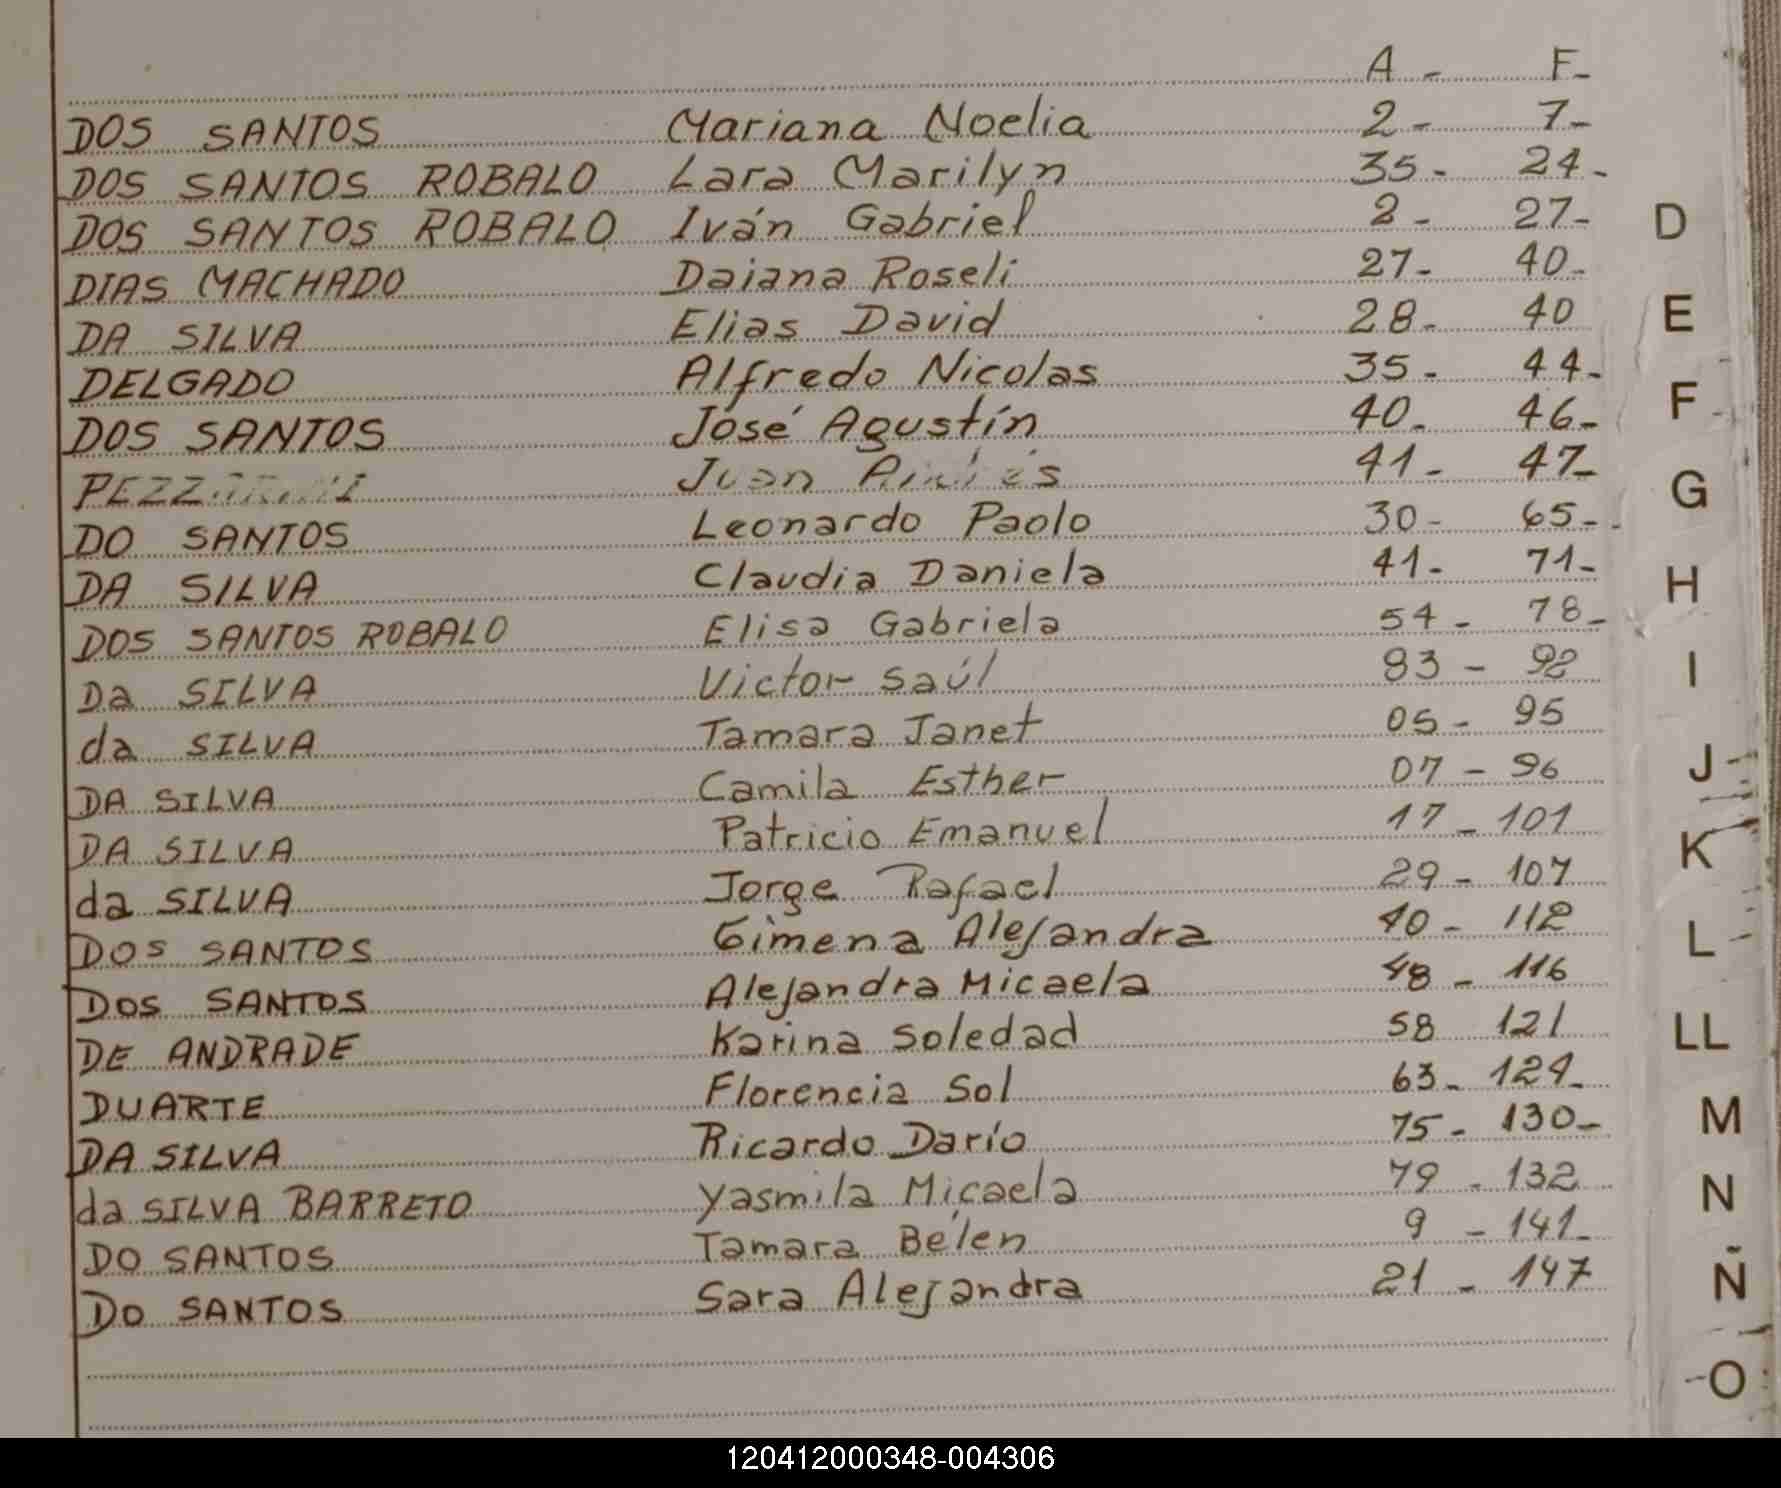 A - F-
DOS SANTOS Mariana Noelia 2- 7-
DOS SANTOS ROBALO Lara Marilyn 35- 24-
DOS SANTOS ROBALO Iván Gabriel 2- 27-
DIAS MACHADO Daiana Roseli 27- 40-
DA SILVA Elias David 28- 40
DELGADO Alfredo Nicolas 35- 44-
DOS SANTOS José Agustín 40- 46-
Juan 41- 47-
DO SANTOS Leonardo Paolo 30- 65-
DA SILVA Claudia Daniela 41- 71-
DOS SANTOS ROBALO Elisa Gabriela 54- 78-
Da SILVA Victor Saúl 83- 92
da SILVA Tamara Janet 05- 95
DA SILVA Camila Esther 07- 96
DA SILVA Patricio Emanuel 17- 101
da SILVA Jorge Rafael 29- 107
DOS SANTOS Gimena Alejandra 40- 112
DOS SANTOS Alejandra Micaela 48- 116
DE ANDRADE Karina Soledad 58 121
DUARTE Florencia Sol 63- 124-
DA SILVA Ricardo Darío 75- 130-
da SILVA BARRETO Yasmila Micaela 79- 132
DO SANTOS Tamara Bélen 9- 141-
DO SANTOS Sara Alejandra 21- 147
D
E
F
G
H
I
J
K
L
LL
M
N
Ñ
O
120412000348-004306